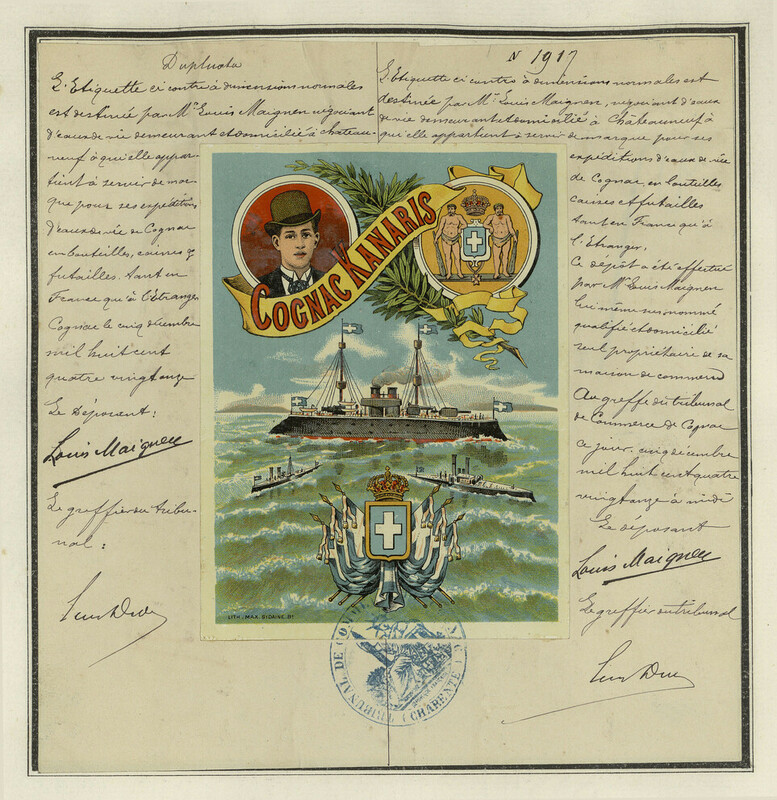 Duplicata
L'Etiquette ci contre à dimensions normales
est destinée par Mr Louis Maignen négociant
d'eaux de vie demeurant et domicilié à Château-
neuf à qui elle appar-
tient à servir de mar-
que pour ses expéditions
d'eaux de vie de Cognac
en bouteilles, caisses &
futailles. tant en
France qu'à l'Etranger
Cognac le cinq décembre
mil huit cent
quatre vingt onze
Le Déposant :
Louis Maignen
Le greffier du tribu-
nal :
N 1917
L'Etiquette ci contre à dimensions normales est
destinée par Mr Louis Maignen, négociant d'eaux
de vie demeurant et domicilié à Châteauneuf à
qui elle appartient à servir de marque pour ses
expéditions d'eaux de vie
de Cognac en bouteilles
caisses et futailles
tant en France qu'à
l'Etranger.
Ce dépôt a été effectué
par Mr Louis Maignen
lui même susnommé
qualifié et domicilié
seul propriétaire de sa
maison de commerce
Au greffe du tribunal
de Commerce de Cognac
ce jour, cinq décembre
mil huit cent quatre
vingt onze à midi
Le déposant
Louis Maignen
Le greffier du tribunal
COGNAC KANARIS
LITH. MAX. SIDAINE. Bx
TRIBUNAL DE COMM
CHARENTE